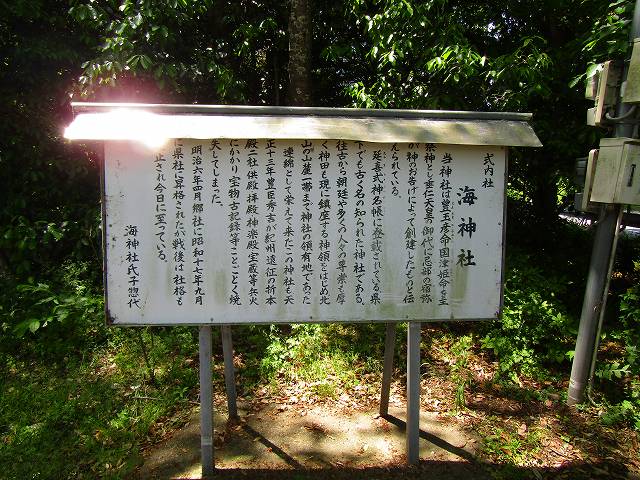 式内社
海神社
当神社は豊玉彦命国津姫命を主
祭神とし垂仁天皇の御代に忌部の宿弥
が神のお告げによって創建したものと伝
えられている。
延喜式神名帳に登載されている県
下でも古く名の知られた神社である。
往古から朝廷や多くの人々の尊崇も厚
く神田も現に鎮座する神領をはじめ北
山の山麓一帯まで神社の領有地であった
連綿として栄えて来たこの神社も天
正十三年豊臣秀吉が紀州遠征の折本
殿二社供殿拝殿神楽殿宝蔵等兵火
にかかり宝物古記録等ことごとく焼
失してしまった。
明治六年四月郷社に昭和十七年九月
に県社に昇格されたが戦後は社格も
止され今日に至っている。
海神社氏子惣代